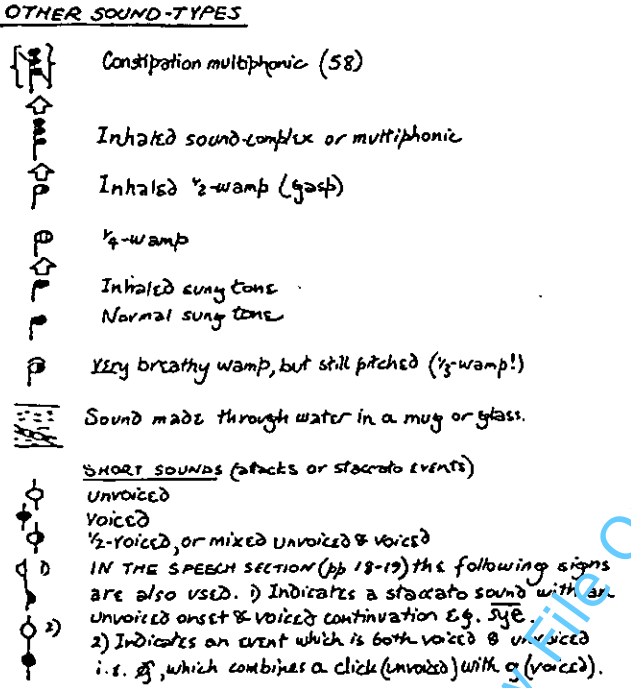 OTHER SOUND-TYPES
Constipation multiphonic (58)
Inhaled sound-complex or multiphonic
Inhaled ½-wamp (gasp)
¼-wamp
Inhaled sung tone
Normal sung tone
Very breathy wamp, but still pitched (⅓-wamp!)
Sound made through water in a mug or glass.
SHORT SOUNDS (attacks or staccato events)
Unvoiced
Voiced
½-voiced, or mixed unvoiced & voiced
1) IN THE SPEECH SECTION (pp 18-19) the following signs
are also used. 1) Indicates a staccato sound with an
unvoiced onset & voiced continuation eg. sye.
2) 2) Indicates an event which is both voiced & unvoiced
i.e. , which combines a click (unvoiced) with g (voiced).
File